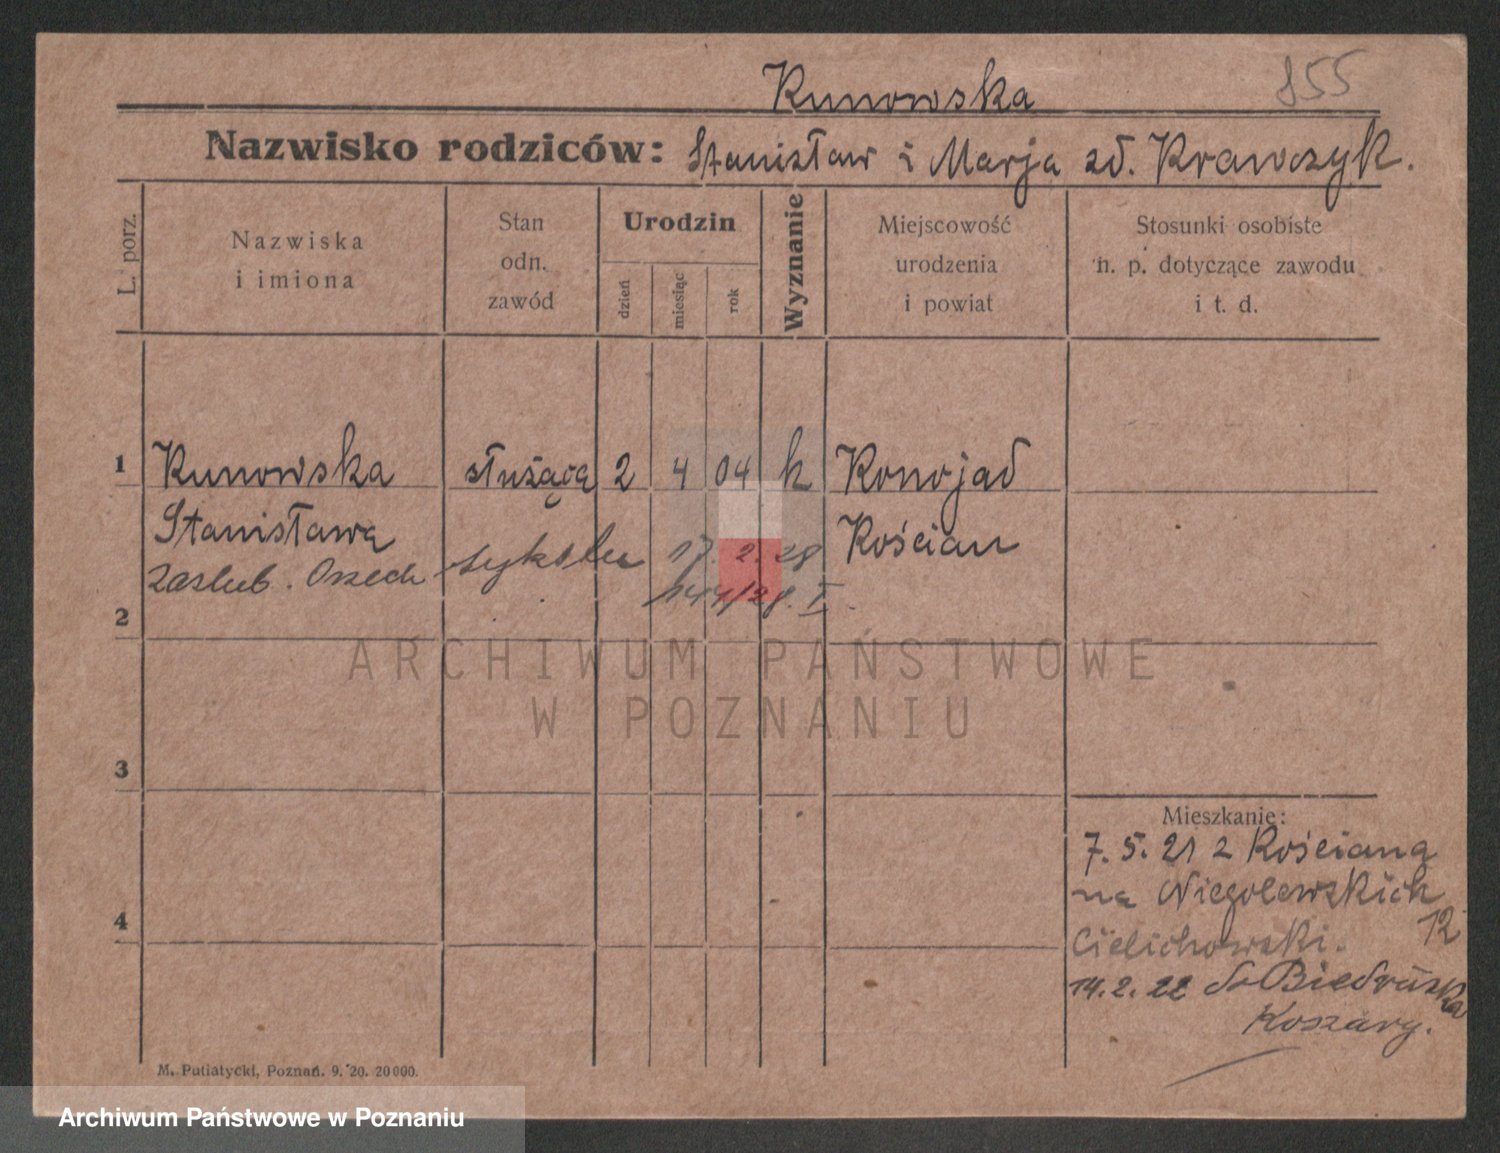 Kunowska 855
Nazwisko rodziców: Stanisław i Marja zd. Krawczyk.
L. porz.
Nazwiska
i imiona
Stan
odn.
zawód
Urodzin
dzień
miesiąc
rok
Wyznanie
Miejscowość
urodzenia
i powiat
Stosunki osobiste
n. p. dotyczące zawodu
i t. d.
1 Kunowska służąca 2 4 04 k Konojad
Stanisława Kościan
zaślub. Orzech 17. 2. 28
2 144/28. I.
ARCHIWUM PAŃSTWOWE
W POZNANIU
3
4
Mieszkanie:
7. 5. 21 z Kościana
na Niegolewskich
12
Cielichowski.
14. 2. 22 do Biedruska
Koszary.
M. Putiatycki, Poznań. 9. 20. 20000.
Archiwum Państwowe w Poznaniu